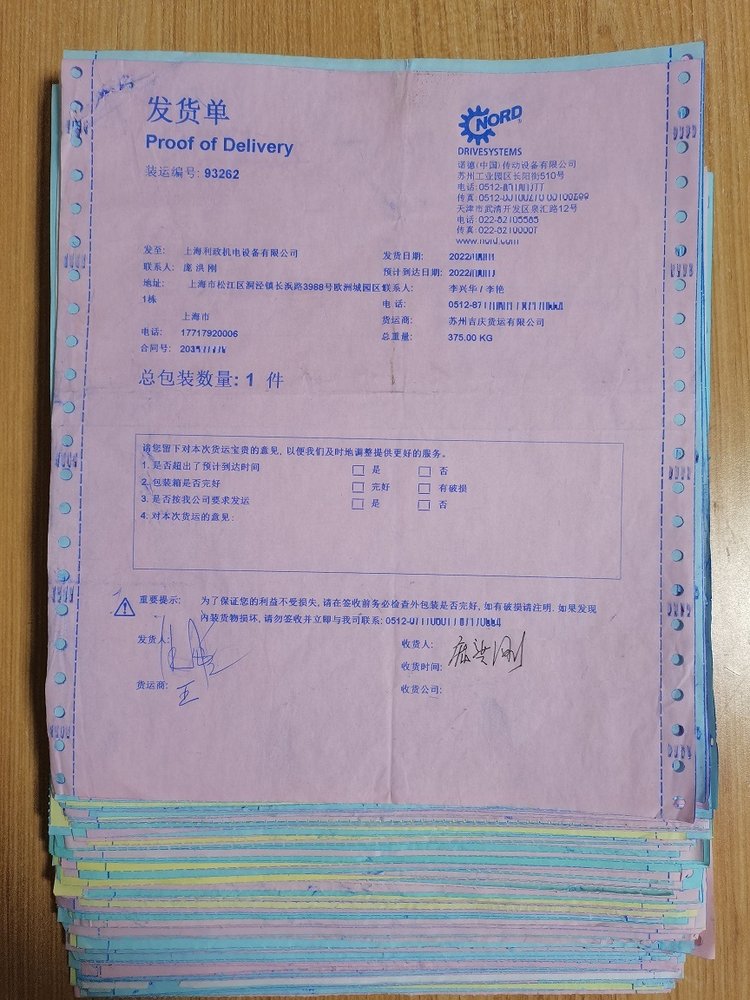 发货单
Proof of Delivery
装运编号: 93262
NORD
DRIVESYSTEMS
诺德(中国)传动设备有限公司
苏州工业园区长阳街510号
电话: 0512-
传真: 0512-
天津市武清开发区泉汇路12号
电话: 022-82105585
传真: 022-
www.nord.com
发至: 上海利政机电设备有限公司
联系人: 庞洪刚
地址: 上海市松江区洞泾镇长浜路3988号欧洲城园区
1栋
上海市
电话: 17717920006
合同号:
发货日期: 2022
预计到达日期: 2022
联系人: 李兴华 / 李艳
电 话: 0512-87
货运商: 苏州吉庆货运有限公司
总重量: 375.00 KG
总包装数量: 1 件
请您留下对本次货运宝贵的意见, 以便我们及时地调整提供更好的服务。
1. 是否超出了预计到达时间 是 否
2. 包装箱是否完好 完好 有破损
3. 是否按我公司要求发运 是 否
4: 对本次货运的意见:
重要提示: 为了保证您的利益不受损失, 请在签收前务必检查外包装是否完好, 如有破损请注明. 如果发现
内装货物损坏, 请勿签收并立即与我司联系: 0512-
发货人:
货运商: 王
收货人: 庞洪刚
收货时间:
收货公司: